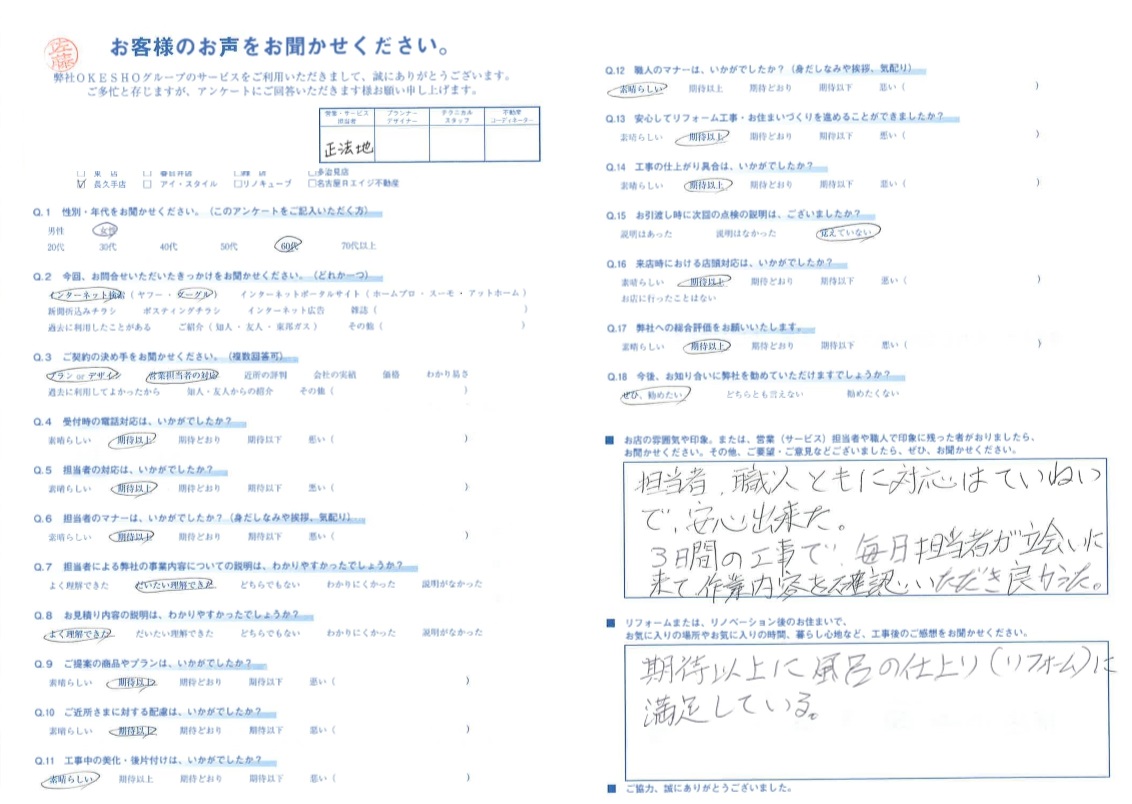 佐藤
お客様のお声をお聞かせください。
弊社OKESHOグループのサービスをご利用いただきまして、誠にありがとうございます。
ご多忙と存じますが、アンケートにご回答いただきます様お願い申し上げます。
営業・サービス担当者 プランナーデザイナー テクニカルスタッフ 不動産コーディネーター
正法地
□ 東 店 □ 春日井店 店 □多治見店
☑ 長久手店 □ アイ・スタイル □リノキューブ □名古屋Rエイジ不動産
Q.1 性別・年代をお聞かせください。（このアンケートをご記入いただく方）
男性 女性
20代 30代 40代 50代 60代 70代以上
Q.2 今回、お問合せいただいたきっかけをお聞かせください。（どれか一つ）
インターネット検索（ ヤフー ・ グーグル ） インターネットポータルサイト（ ホームプロ ・ スーモ ・ アットホーム ）
新聞折込みチラシ ポスティングチラシ インターネット広告 雑誌（ ）
過去に利用したことがある ご紹介（ 知人 ・ 友人 ・ 東邦ガス ） その他（ ）
Q.3 ご契約の決め手をお聞かせください。（複数回答可）
プラン or デザイン 営業担当者の対応 近所の評判 会社の実績 価格 わかり易さ
過去に利用してよかったから 知人・友人からの紹介 その他（ ）
Q.4 受付時の電話対応は、いかがでしたか？
素晴らしい 期待以上 期待どおり 期待以下 悪い（ ）
Q.5 担当者の対応は、いかがでしたか？
素晴らしい 期待以上 期待どおり 期待以下 悪い（ ）
Q.6 担当者のマナーは、いかがでしたか？（身だしなみや挨拶、気配り）
素晴らしい 期待以上 期待どおり 期待以下 悪い（ ）
Q.7 担当者による弊社の事業内容についての説明は、わかりやすかったでしょうか？
よく理解できた だいたい理解できた どちらでもない わかりにくかった 説明がなかった
Q.8 お見積り内容の説明は、わかりやすかったでしょうか？
よく理解できた だいたい理解できた どちらでもない わかりにくかった 説明がなかった
Q.9 ご提案の商品やプランは、いかがでしたか？
素晴らしい 期待以上 期待どおり 期待以下 悪い（ ）
Q.10 ご近所さまに対する配慮は、いかがでしたか？
素晴らしい 期待以上 期待どおり 期待以下 悪い（ ）
Q.11 工事中の美化・後片付けは、いかがでしたか？
素晴らしい 期待以上 期待どおり 期待以下 悪い（ ）
Q.12 職人のマナーは、いかがでしたか？（身だしなみや挨拶、気配り）
素晴らしい 期待以上 期待どおり 期待以下 悪い（ ）
Q.13 安心してリフォーム工事・お住まいづくりを進めることができましたか？
素晴らしい 期待以上 期待どおり 期待以下 悪い（ ）
Q.14 工事の仕上がり具合は、いかがでしたか？
素晴らしい 期待以上 期待どおり 期待以下 悪い（ ）
Q.15 お引渡し時に次回の点検の説明は、ございましたか？
説明はあった 説明はなかった 覚えていない
Q.16 来店時における店頭対応は、いかがでしたか？
素晴らしい 期待以上 期待どおり 期待以下 悪い（ ）
お店に行ったことはない
Q.17 弊社への総合評価をお願いいたします。
素晴らしい 期待以上 期待どおり 期待以下 悪い（ ）
Q.18 今後、お知り合いに弊社を勧めていただけますでしょうか？
ぜひ、勧めたい どちらとも言えない 勧めたくない
■ お店の雰囲気や印象。または、営業（サービス）担当者や職人で印象に残った者がおりましたら、
お聞かせください。その他、ご要望・ご意見などございましたら、ぜひ、お聞かせください。
担当者、職人ともに対応はていねい
で、安心出来た。
3日間の工事で、毎日担当者が立会いに
来て作業内容を確認いただき良かった。
■ リフォームまたは、リノベーション後のお住まいで、
お気に入りの場所やお気に入りの時間、暮らし心地など、工事後のご感想をお聞かせください。
期待以上に風呂の仕上り（リフォーム）に
満足している。
■ ご協力、誠にありがとうございました。